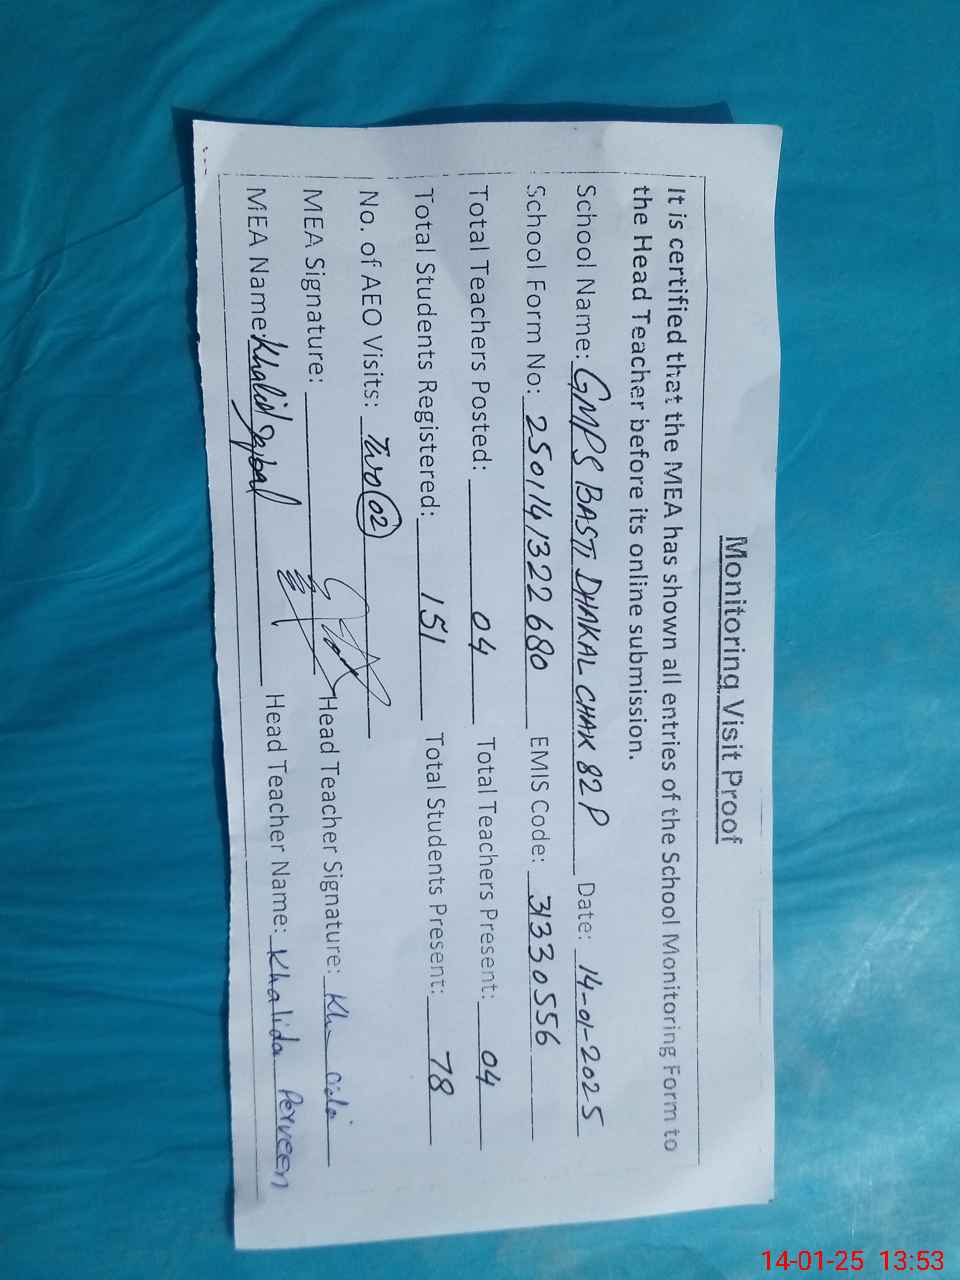 Monitoring Visit Proof
It is certified that the MEA has shown all entries of the School Monitoring Form to
the Head Teacher before its online submission.
School Name: GMPS BASTI DHAKAL CHAK 82P Date: 14-01-2025
School Form No: 2501141322680 EMIS Code: 31330556
Total Teachers Posted: 04 Total Teachers Present: 04
Total Students Registered: 151 Total Students Present: 78
No. of AEO Visits: Two 02
MEA Signature: Head Teacher Signature:
MEA Name: Khalid Iqbal Head Teacher Name: Khalida Perveen
14-01-25 13:53